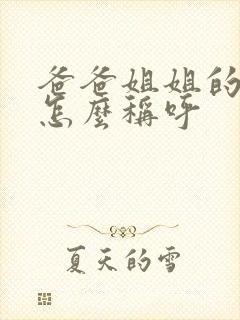 爸爸姐姐的
怎麼稱呼
夏天的雪